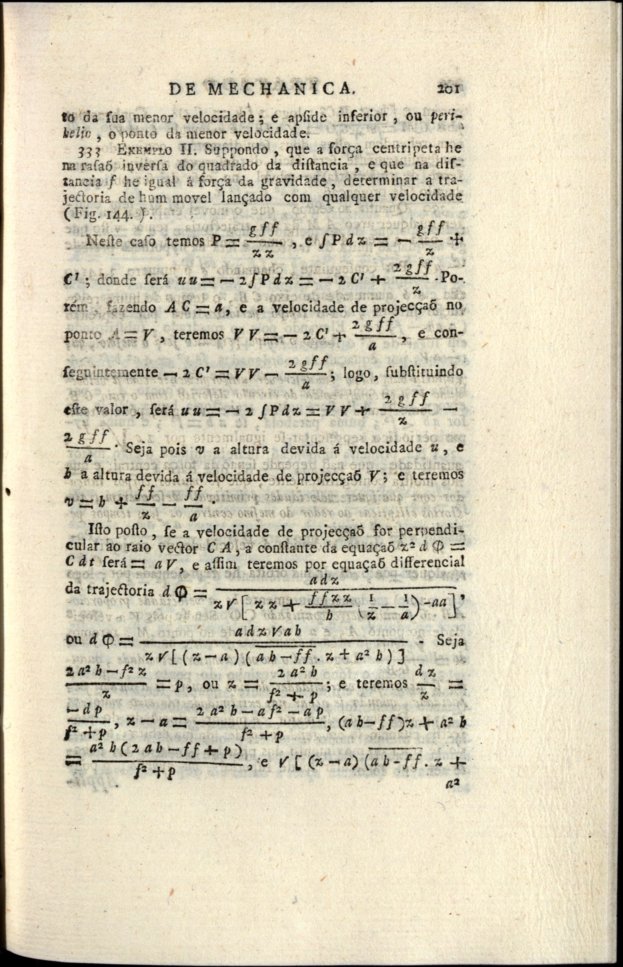 DE MECHANICA. 201
to da sua menor velocidade; e apside inferior, ou peri-
helio, o ponto da menor velocidade.
333 EXEMPLO II. Suppondo, que a força centripeta he
na rasaõ inversa do quadrado da distancia, e que na dis-
tancia f he igual á força da gravidade, determinar a tra-
jectoria de hum movel lançado com qualquer velocidade
(Fig. 144.).
Neste caso temos P = gff/zz, e ∫Pdz = − gff/z +
C'; donde será uu = − 2∫Pdz = − 2C' + 2gff/z. Po-
rém, fazendo AC = a, e a velocidade de projecçaõ no
ponto A = V, teremos VV = − 2C' + 2gff/a, e con-
seguintemente − 2C' = VV − 2gff/a; logo, substituindo
este valor, será uu = − 2∫Pdz = VV + 2gff/z −
2gff/a. Seja pois v a altura devida á velocidade u, e
b a altura devida á velocidade de projecçaõ V; e teremos
v = b + ff/z − ff/a.
Isto posto, se a velocidade de projecçaõ for perpendi-
cular ao raio vector CA, a constante da equaçaõ z² dΦ =
Cdt será = aV, e assim teremos por equaçaõ differencial
da trajectoria dΦ = adz / z√[zz + ffzz/b (1/z − 1/a) −aa],
ou dΦ = adz√ab / z√[(z − a)(ab − ff . z + a²b)]. Seja
2a²b − f²z / z = p, ou z = 2a²b / f² + p; e teremos dz/z =
−dp / f² + p, z − a = 2a²b − af² − ap / f² + p, (ab − ff)z + a²b
= a²b(2ab − ff + p) / f² + p, e √[(z − a)(ab − ff . z +
a²